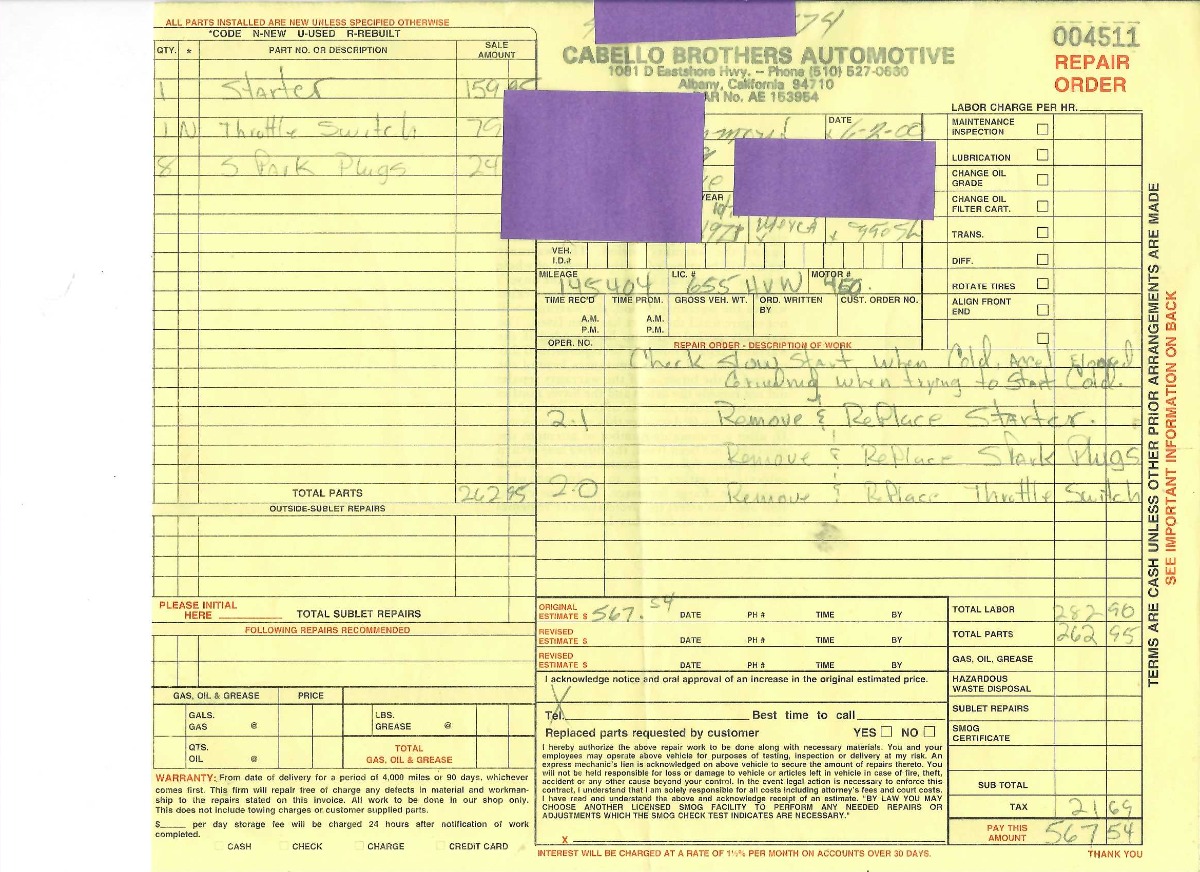 ALL PARTS INSTALLED ARE NEW UNLESS SPECIFIED OTHERWISE
*CODE N-NEW U-USED R-REBUILT
QTY. * PART NO. OR DESCRIPTION SALE AMOUNT
1 Starter 159 95
1 N Throttle Switch 79
8 Spark Plugs 24
TOTAL PARTS 262 95
OUTSIDE-SUBLET REPAIRS
PLEASE INITIAL HERE ________ TOTAL SUBLET REPAIRS
FOLLOWING REPAIRS RECOMMENDED
GAS, OIL & GREASE PRICE
GALS. GAS @ LBS. GREASE @
QTS. OIL @ TOTAL GAS, OIL & GREASE
WARRANTY: From date of delivery for a period of 4,000 miles or 90 days, whichever
comes first. This firm will repair free of charge any defects in material and workman-
ship to the repairs stated on this invoice. All work to be done in our shop only.
This does not include towing charges or customer supplied parts.
$_____ per day storage fee will be charged 24 hours after notification of work
completed.
CASH CHECK CHARGE CREDIT CARD
74
CABELLO BROTHERS AUTOMOTIVE
1081 D Eastshore Hwy. -- Phone (510) 527-0630
Albany, California 94710
BAR No. AE 153954
004511
REPAIR
ORDER
DATE
6-2-00
YEAR
VEH. I.D.#
MILEAGE 145404 LIC. # 655 HVW MOTOR # 450.
TIME REC'D A.M. P.M. TIME PROM. A.M. P.M. GROSS VEH. WT. ORD. WRITTEN BY CUST. ORDER NO.
OPER. NO. REPAIR ORDER - DESCRIPTION OF WORK
Check Slow Start when Cold. And
Grinding when trying to Start Cold.
2.1 Remove & RePlace Starter.
Remove & RePlace Spark Plugs
2.0 Remove & RePlace Throttle Switch
LABOR CHARGE PER HR.
MAINTENANCE INSPECTION
LUBRICATION
CHANGE OIL GRADE
CHANGE OIL FILTER CART.
TRANS.
DIFF.
ROTATE TIRES
ALIGN FRONT END
ORIGINAL ESTIMATE $ 567.54 DATE PH # TIME BY
REVISED ESTIMATE $ DATE PH # TIME BY
REVISED ESTIMATE $ DATE PH # TIME BY
I acknowledge notice and oral approval of an increase in the original estimated price.
X
Tel. Best time to call
Replaced parts requested by customer YES NO
I hereby authorize the above repair work to be done along with necessary materials. You and your
employees may operate above vehicle for purposes of testing, inspection or delivery at my risk. An
express mechanic's lien is acknowledged on above vehicle to secure the amount of repairs thereto. You
will not be held responsible for loss or damage to vehicle or articles left in vehicle in case of fire, theft,
accident or any other cause beyond your control. In the event legal action is necessary to enforce this
contract, I understand that I am solely responsible for all costs including attorney's fees and court costs.
I have read and understand the above and acknowledge receipt of an estimate. "BY LAW YOU MAY
CHOOSE ANOTHER LICENSED SMOG FACILITY TO PERFORM ANY NEEDED REPAIRS OR
ADJUSTMENTS WHICH THE SMOG CHECK TEST INDICATES ARE NECESSARY."
X
INTEREST WILL BE CHARGED AT A RATE OF 1½% PER MONTH ON ACCOUNTS OVER 30 DAYS.
TOTAL LABOR 282 90
TOTAL PARTS 262 95
GAS, OIL, GREASE
HAZARDOUS WASTE DISPOSAL
SUBLET REPAIRS
SMOG CERTIFICATE
SUB TOTAL
TAX 21 69
PAY THIS AMOUNT 567 54
THANK YOU
TERMS ARE CASH UNLESS OTHER PRIOR ARRANGEMENTS ARE MADE
SEE IMPORTANT INFORMATION ON BACK